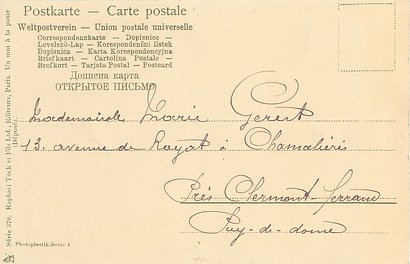 Postkarte - Carte postale
Weltpostverein - Union postale universelle
Correspondenzkarte - Dopisnice -
Levelező-Lap - Korespondenční listek
Dopisnica - Karta Korespondencyjna
Briefkaart - Cartolina Postale -
Brefkort - Tarjeta Postal - Postcard
Дописна карта
ОТКРЫТОЕ ПИСЬМО
Mademoiselle Marie
13. avenue de Royat à Chamalières
Près Clermont-Ferrand
Puy-de-dome
Série 578. Raphael Tuck et fils Ltd., Editeurs, Paris. Un mot à la poste
(Déposé).
Photoplastik-Serie I